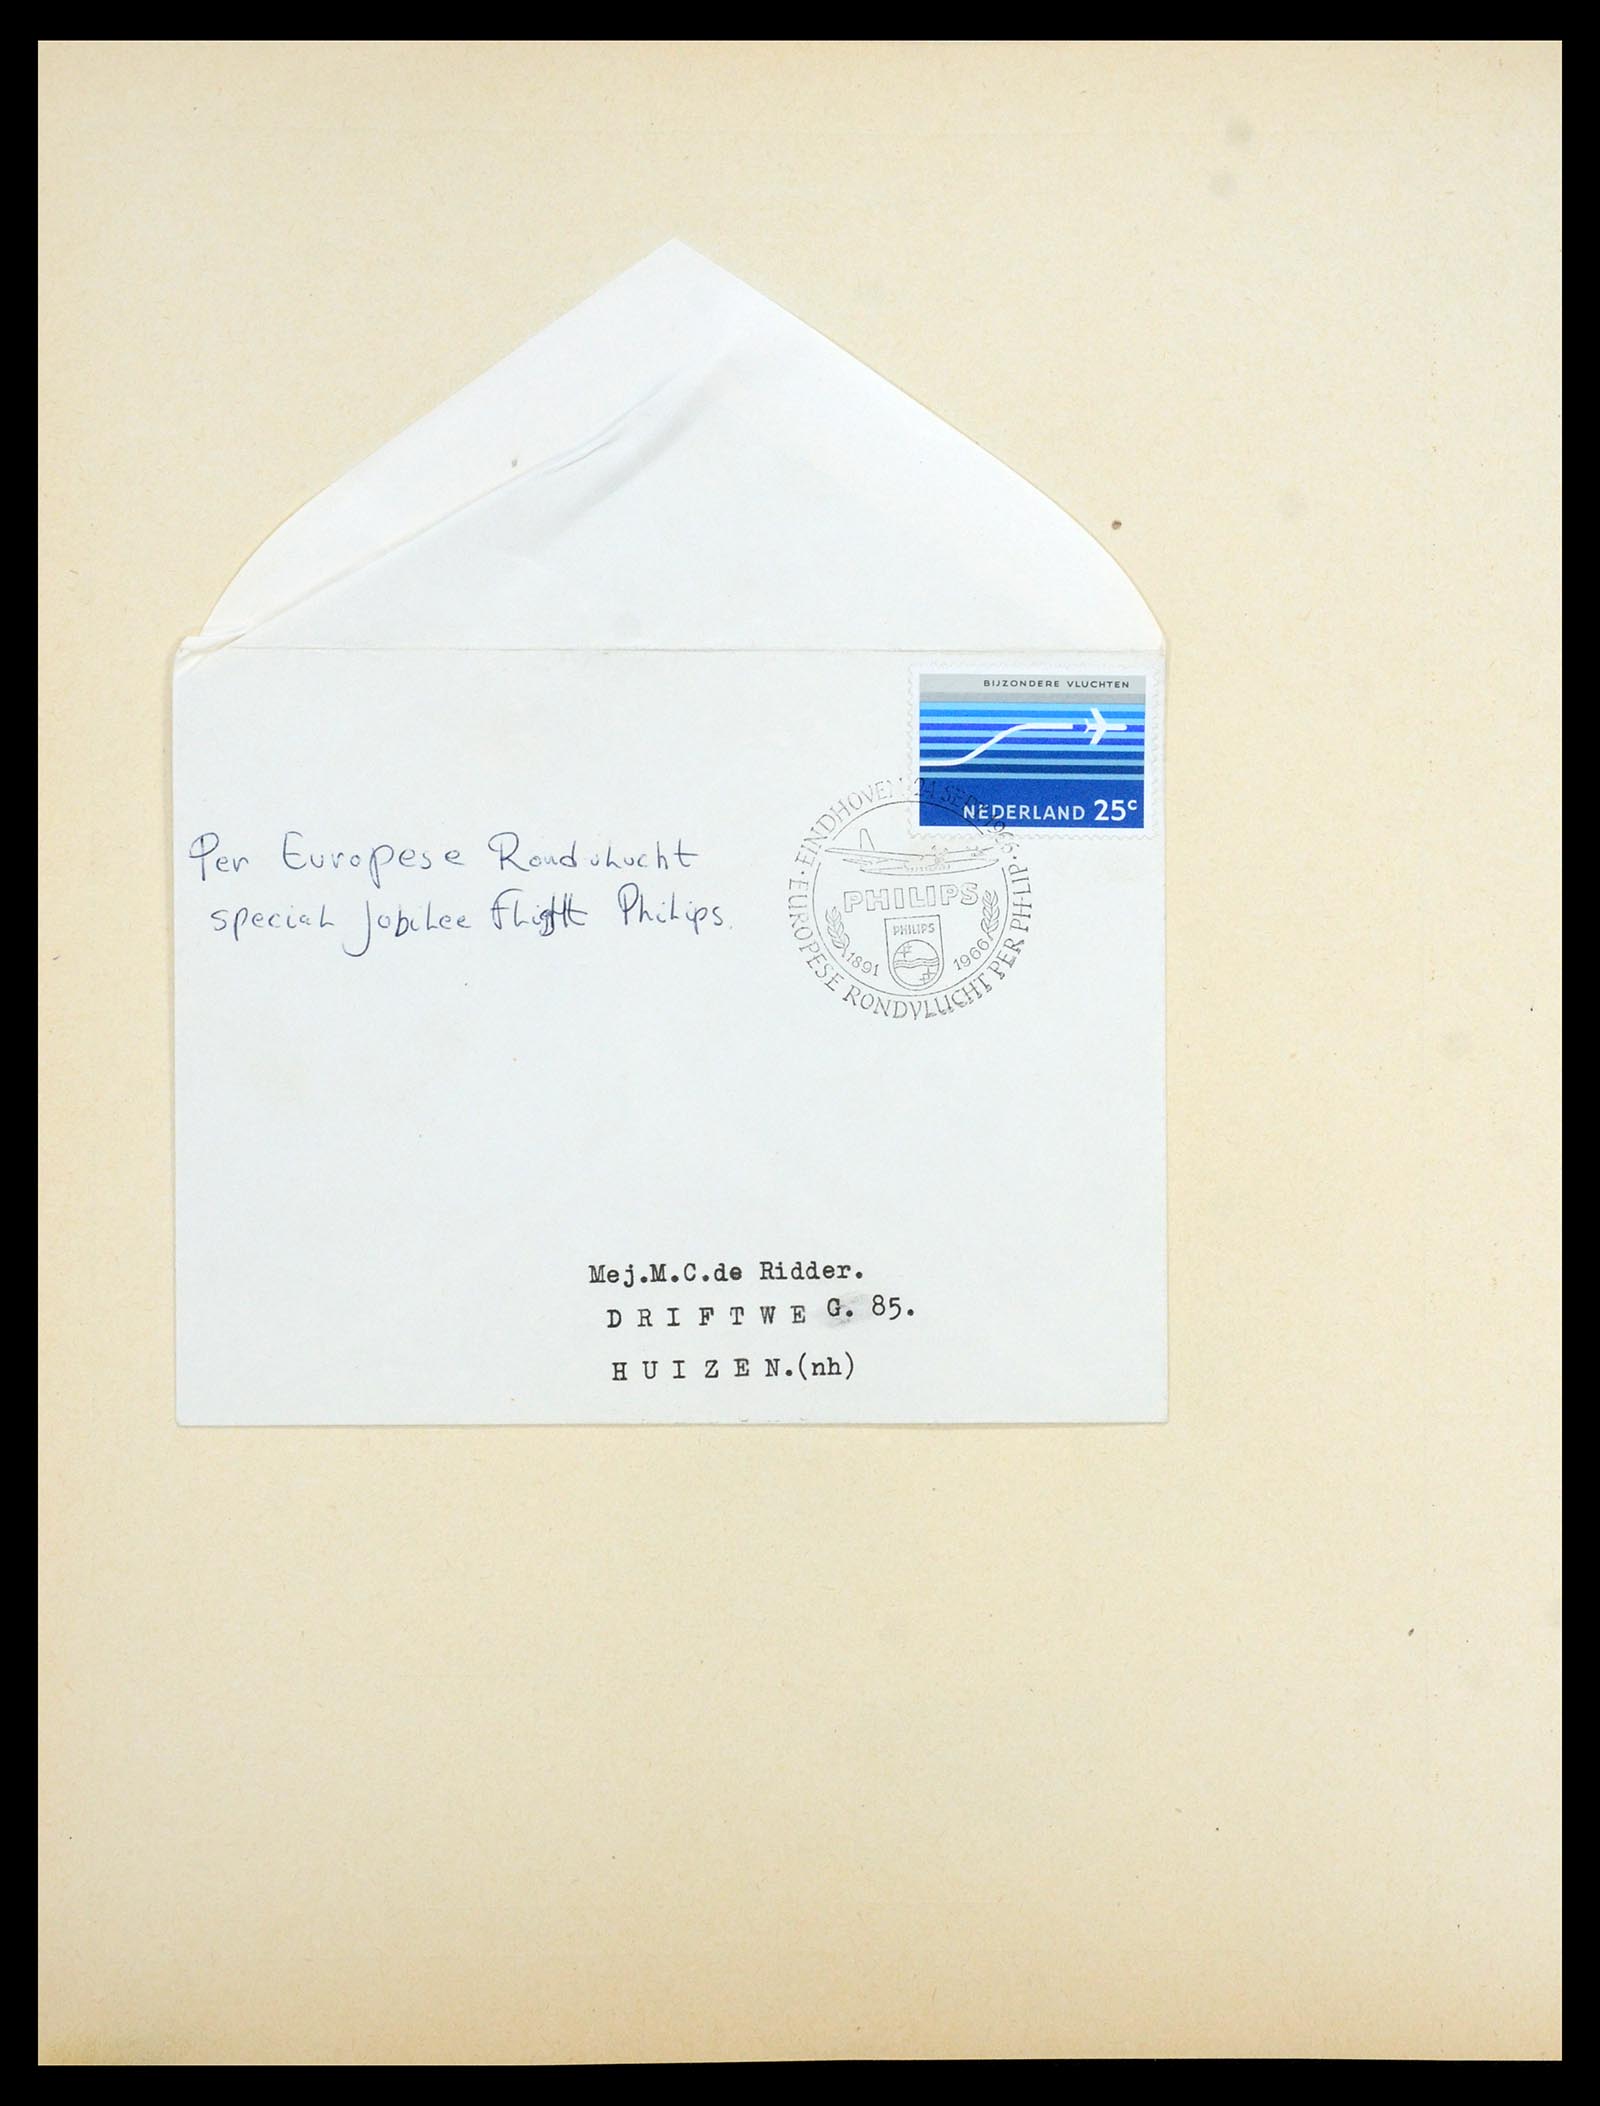 BIJZONDERE VLUCHTEN
NEDERLAND 25c
EINDHOVEN 24 SEP 1966 · EUROPESE RONDVLUCHT PER PH-LIP ·
PHILIPS
PHILIPS
1891 1966
Per Europese Rondvlucht
special Jubilee Flight Philips.
Mej.M.C.de Ridder.
DRIFTWEG. 85.
HUIZEN.(nh)